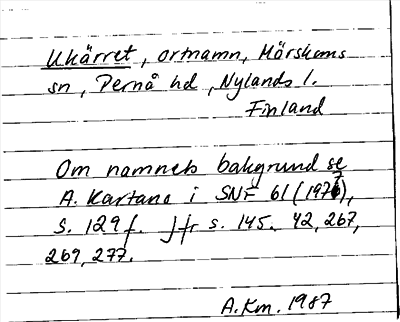 Ukärret, ortnamn, Mörskoms
sn, Pernå hd, Nylands l.
Finland
Om namnets bakgrund se
A. Kartano i SNF 61 (1977),
s. 129 f. Jfr s. 145. 42, 267,
269, 277.
A.Km. 1987